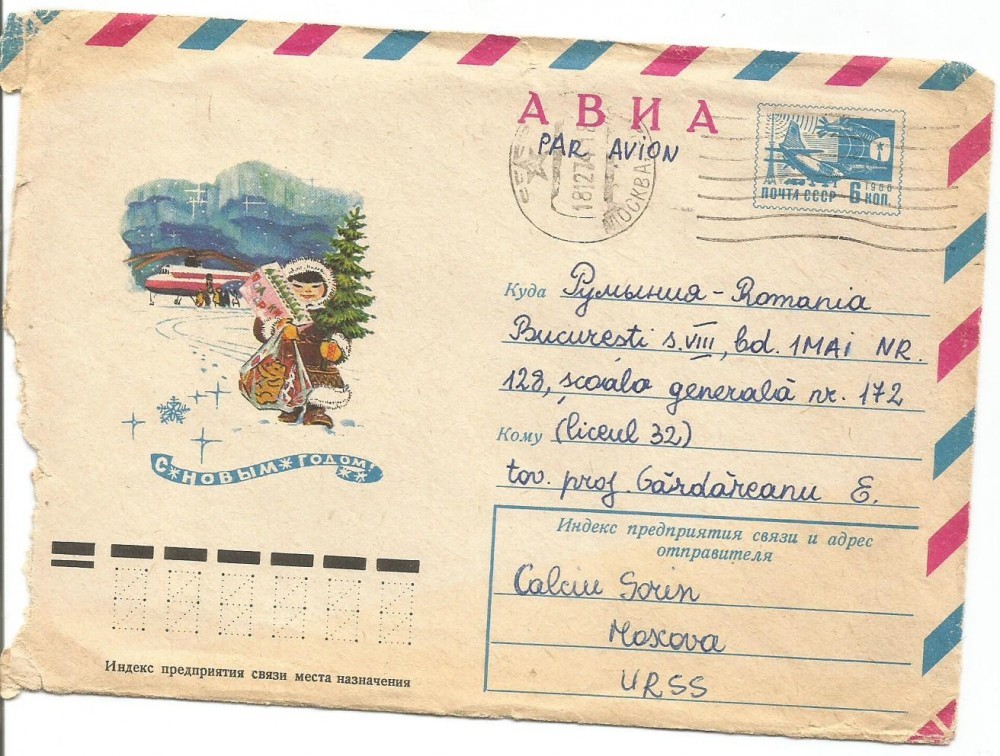 АВИА
PAR AVION
МОСКВА
181274
1966
ПОЧТА СССР 6 КОП.
Куда Румыния - Romania
Bucuresti s. VIII, bd. 1 MAI NR.
128, școala generală nr. 172
Кому (liceul 32)
tov. prof. Gârdăreanu E.
С НОВЫМ ГОДОМ!
Индекс предприятия связи и адрес
отправителя
Calciu Sorin
Moscova
URSS
Индекс предприятия связи места назначения